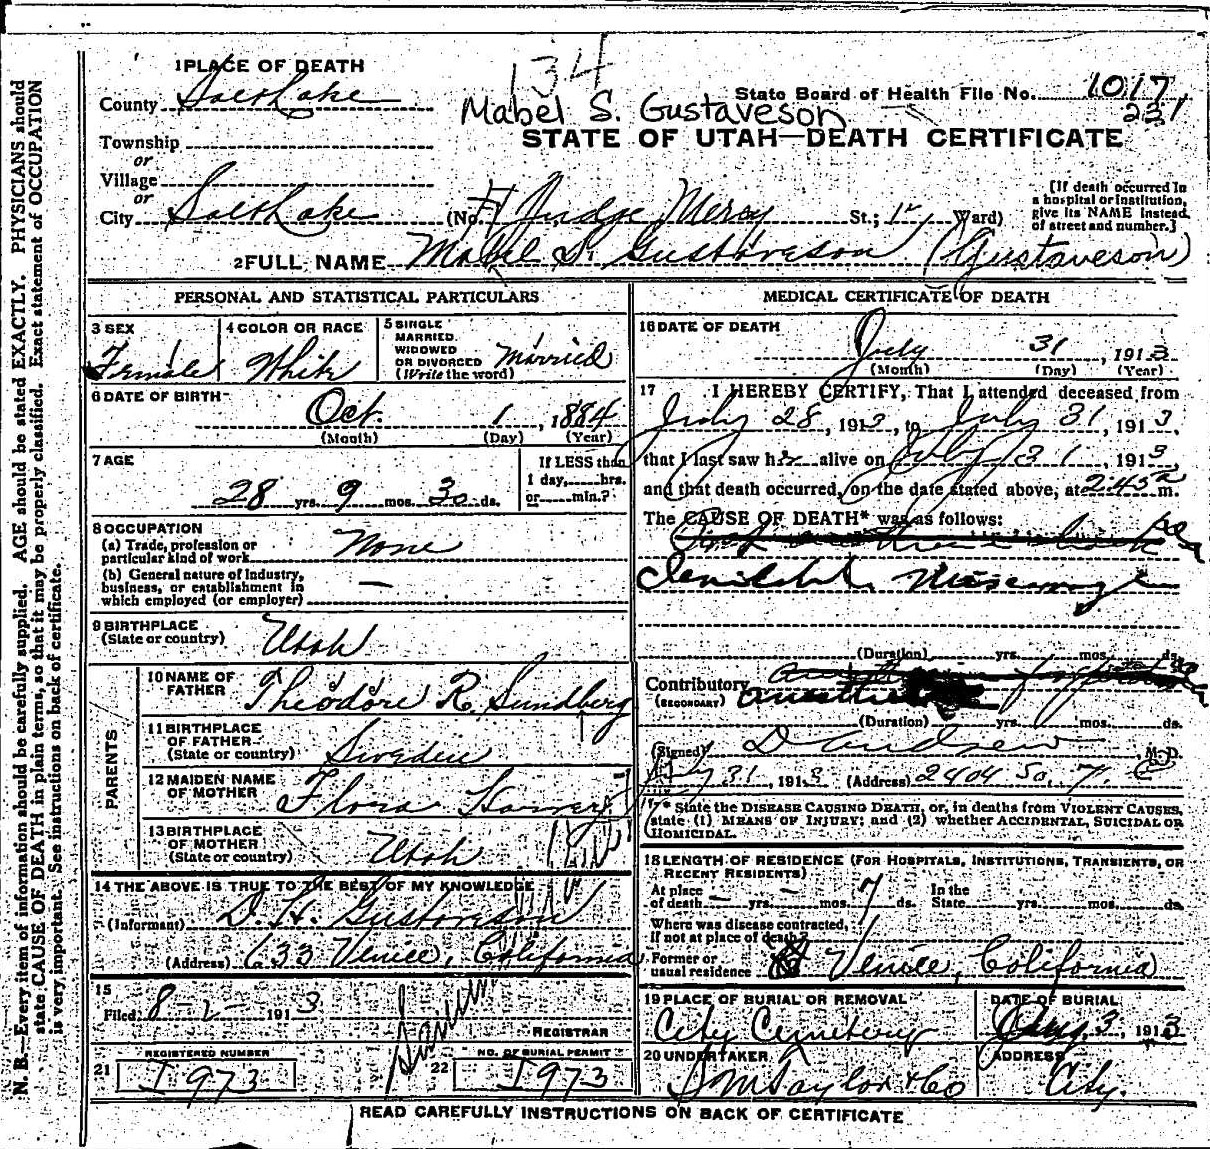 134
1 PLACE OF DEATH
County Salt Lake
State Board of Health File No. 1017
231
Mabel S. Gustaveson
STATE OF UTAH—DEATH CERTIFICATE
Township
or
Village
or
City Salt Lake (No. Judge Mercy St.; Ward)
[If death occurred in a hospital or institution, give its NAME instead of street and number.]
2 FULL NAME Mabel S. Gustaveson (Gustaveson)
PERSONAL AND STATISTICAL PARTICULARS
3 SEX Female
4 COLOR OR RACE White
5 SINGLE MARRIED. WIDOWED OR DIVORCED (Write the word) Married
6 DATE OF BIRTH
Oct. 1, 1884
(Month) (Day) (Year)
7 AGE
28 yrs. 9 mos. 30 ds.
If LESS than 1 day, hrs. or min.?
8 OCCUPATION
(a) Trade, profession or particular kind of work None
(b) General nature of industry, business, or establishment in which employed (or employer) —
9 BIRTHPLACE
(State or country) Utah
PARENTS
10 NAME OF FATHER Theodore R. Sundberg
11 BIRTHPLACE OF FATHER
(State or country) Sweden
12 MAIDEN NAME OF MOTHER Flora
13 BIRTHPLACE OF MOTHER
(State or country) Utah
14 THE ABOVE IS TRUE TO THE BEST OF MY KNOWLEDGE
(Informant) D. H. Gustaveson
(Address) 633 Venice, California
15
Filed 8-2- 1913
REGISTRAR
REGISTERED NUMBER
21 I 973
NO. OF BURIAL PERMIT
22 I 973
MEDICAL CERTIFICATE OF DEATH
16 DATE OF DEATH
July 31, 1913
(Month) (Day) (Year)
17 I HEREBY CERTIFY, That I attended deceased from
July 28, 1913, to July 31, 1913,
that I last saw her alive on July 31, 1913
and that death occurred, on the date stated above, at 2:45 a m.
The CAUSE OF DEATH* was as follows:
(Duration) yrs. mos. ds.
Contributory
(SECONDARY)
(Duration) yrs. mos. ds.
(Signed) M. D.
July 31, 1913 (Address) 2404 So. 7. E
* State the DISEASE CAUSING DEATH, or, in deaths from VIOLENT CAUSES, state (1) MEANS OF INJURY; and (2) whether ACCIDENTAL, SUICIDAL OR HOMICIDAL.
18 LENGTH OF RESIDENCE (FOR HOSPITALS, INSTITUTIONS, TRANSIENTS, OR RECENT RESIDENTS)
At place of death — yrs. — mos. 7 ds. In the State yrs. mos. ds.
Where was disease contracted, if not at place of death?
Former or usual residence Venice, California
19 PLACE OF BURIAL OR REMOVAL
City Cemetery
DATE OF BURIAL
Aug. 3, 1913
20 UNDERTAKER
S M Taylor & Co
ADDRESS
City.
READ CAREFULLY INSTRUCTIONS ON BACK OF CERTIFICATE
N. B.—Every item of information should be carefully supplied. AGE should be stated EXACTLY. PHYSICIANS should
state CAUSE OF DEATH in plain terms, so that it may be properly classified. Exact statement of OCCUPATION
is very important. See instructions on back of certificate.